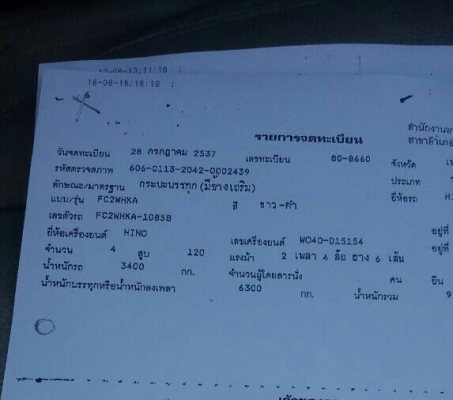 18-08-15:16:19 ;
รายการจดทะเบียน
สำนักงานขน
สาขาอำเภอ
วันจดทะเบียน 28 กรกฎาคม 2537 เลขทะเบียน 80-8660 จังหวัด
รหัสตรวจสภาพ 606-0113-2042-0002439 ประเภท
ลักษณะ/มาตรฐาน กระบะบรรทุก (มีข้างเสริม) ยี่ห้อรถ HI
แบบ/รุ่น FC2WHKA สี ขาว-ดำ
เลขตัวรถ FC2WHKA-10858 อยู่ที่
ยี่ห้อเครื่องยนต์ HINO เลขเครื่องยนต์ WO4D-D15154 อยู่ที่
จำนวน 4 สูบ 120 แรงม้า 2 เพลา 4 ล้อ ยาง 6 เส้น
น้ำหนักรถ 3400 กก. จำนวนผู้โดยสารนั่ง คน ยืน
น้ำหนักบรรทุกหรือน้ำหนักลงเพลา 6300 กก. น้ำหนักรวม 9